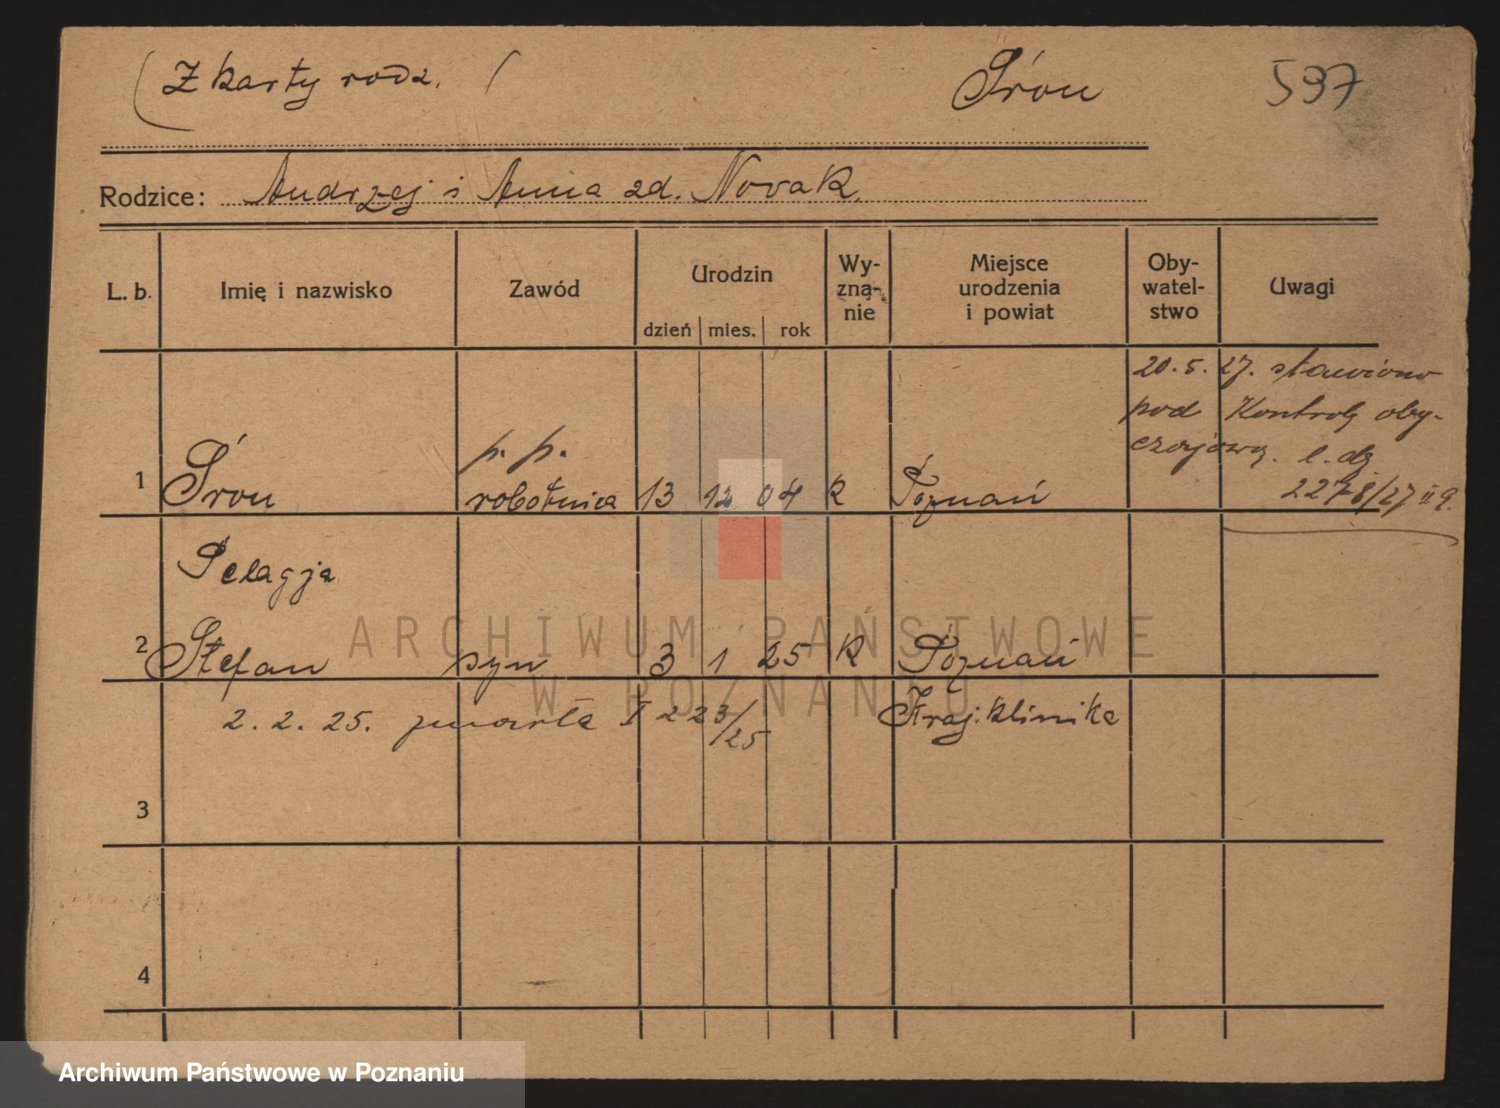 (Z karty rodz. (
Śron
597
Rodzice: Andrzej i Anna zd. Novak.
L. b.
Imię i nazwisko
Zawód
Urodzin
dzień mies. rok
Wy-
zna-
nie
Miejsce
urodzenia
i powiat
Oby-
watel-
stwo
Uwagi
20.5.27. stawiono
pod Kontrolę oby-
czajową. l. dz
2278/27 II 9.
p. p.
1 Śron robotnica 13 12 04 k Poznań
Pelagja
2 Stefan syn 3 1 25 k Poznań
2. 2. 25. zmarła I 223/25 Kraj. klinika
3
4
ARCHIWUM PAŃSTWOWE
W POZNANIU
Archiwum Państwowe w Poznaniu